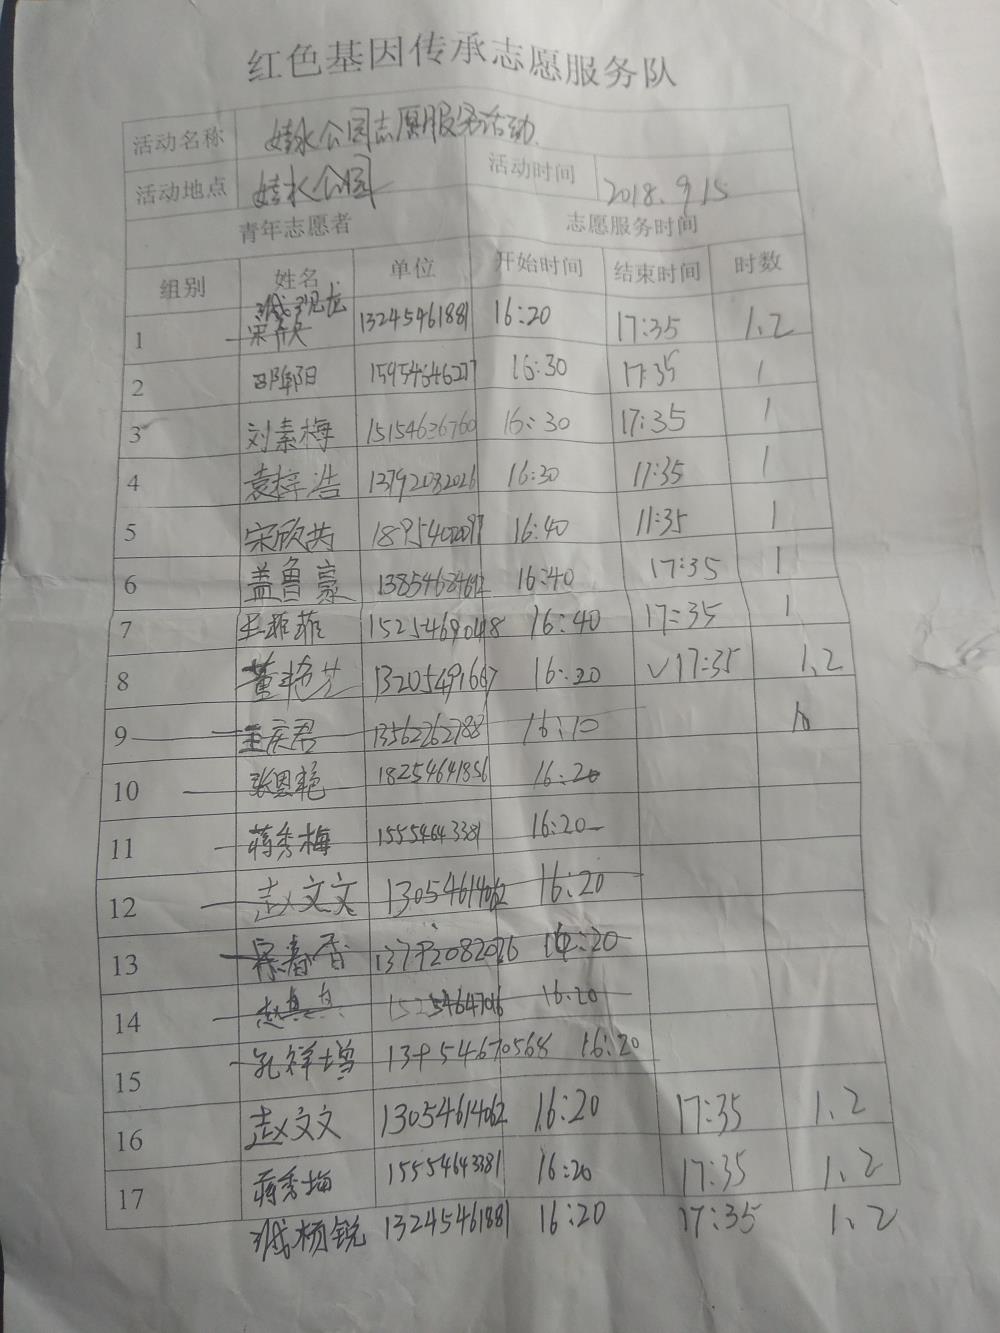 红色基因传承志愿服务队
活动名称 公园志愿服务活动
活动地点 公园 活动时间 2018.9.15
青年志愿者 志愿服务时间
组别 姓名 单位 开始时间 结束时间 时数
1 宋欣 13245461881 16:20 17:35 1.2
2 邯郸阳 15954646277 16:30 17:35 1
3 刘素梅 15154636760 16:30 17:35 1
4 袁梓浩 13792082026 16:30 17:35 1
5 宋欣芮 16:40 11:35 1
6 盖鲁豪 13854684692 16:40 17:35 1
7 王菲菲 16:40 17:35 1
8 董艳芝 13205491667 16:20 √17:35 1.2
9 王庆君 13562262788 16:10
10 张恩艳 18254641856 16:20
11 蒋秀梅 15554643381 16:20
12 赵文文 13054614062 16:20
13 宗春香 13792082026 16:20
14 赵真真 15254647016 16:20
15 孔祥增 13954670568 16:20
16 赵文文 13054614062 16:20 17:35 1.2
17 蒋秀梅 15554643381 16:20 17:35 1.2
杨锐 13245461881 16:20 17:35 1.2